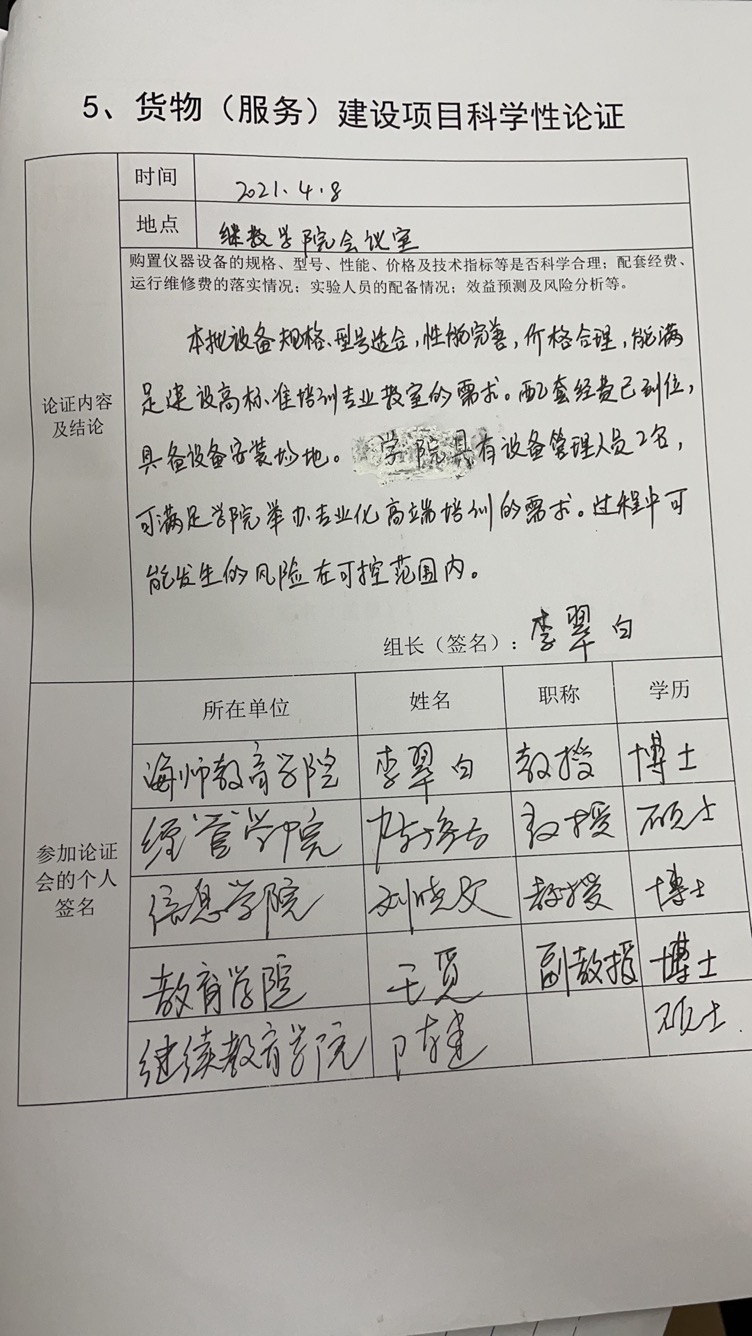 5、货物（服务）建设项目科学性论证
时间 2021.4.8
地点 继教学院会议室
购置仪器设备的规格、型号、性能、价格及技术指标等是否科学合理；配套经费、
运行维修费的落实情况；实验人员的配备情况；效益预测及风险分析等。
论证内容
及结论
本批设备规格、型号适合，性能完善，价格合理，能满
足建设高标准培训专业教室的需求。配套经费已到位，
具备设备安装场地。学院具有设备管理人员2名，
可满足学院举办专业化高端培训的需求。过程中可
能发生的风险在可控范围内。
组长（签名）：李翠白
参加论证
会的个人
签名
所在单位 姓名 职称 学历
海师教育学院 李翠白 教授 博士
经管学院 教授 硕士
信息学院 刘晓文 教授 博士
教育学院 王觅 副教授 博士
继续教育学院 陈建 硕士